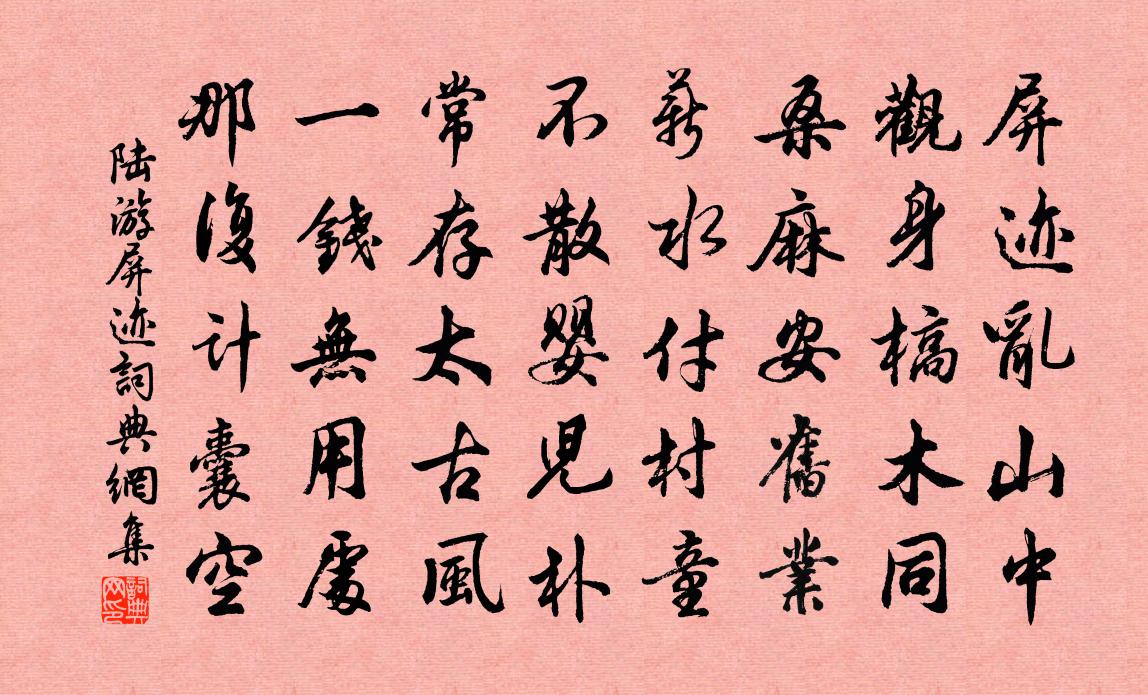 屏迹亂山中
觀身槁木同
桑麻安舊業
薪水付村童
不散嬰児朴
常存太古風
一錢無用處
那復计囊空
陆游屏迹詞典網集
詞典网印